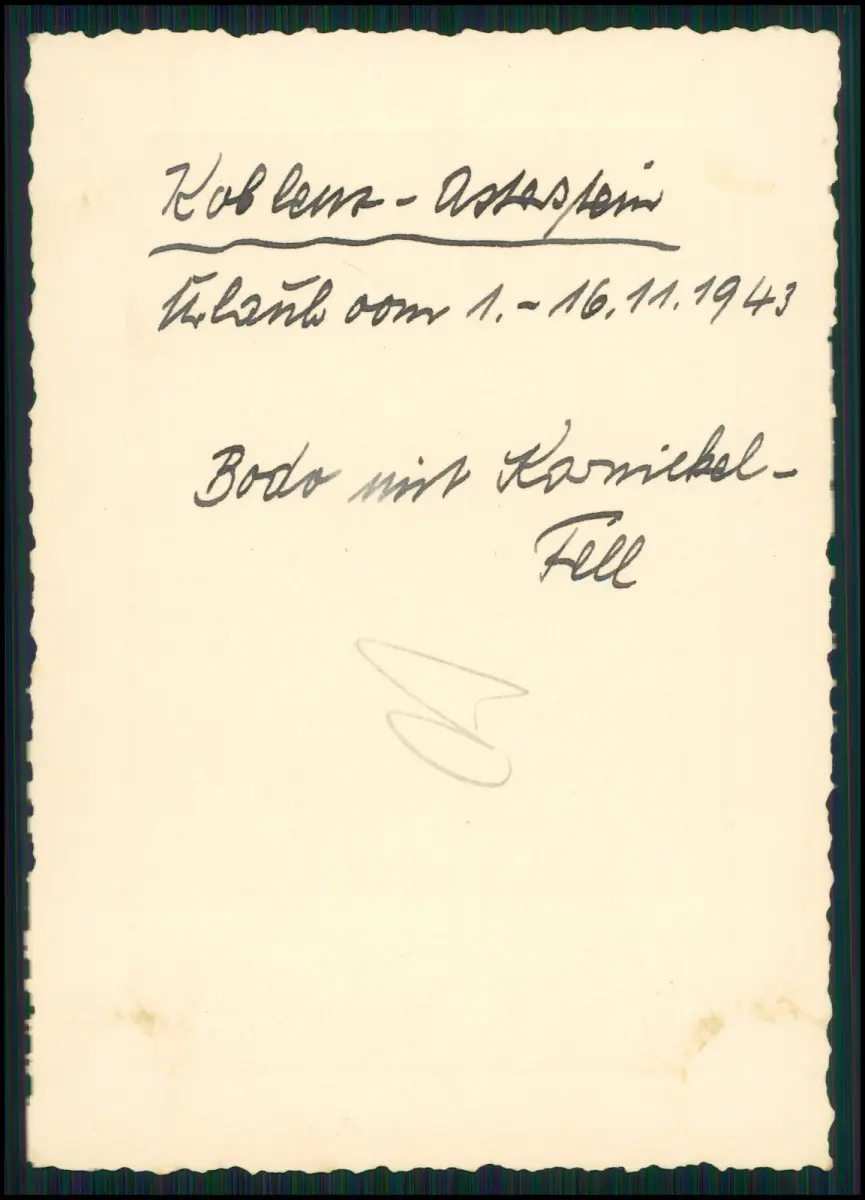 Koblenz - Asterstein
Urlaub vom 1. - 16.11.1943
Bodo mit Karnickel-
Fell